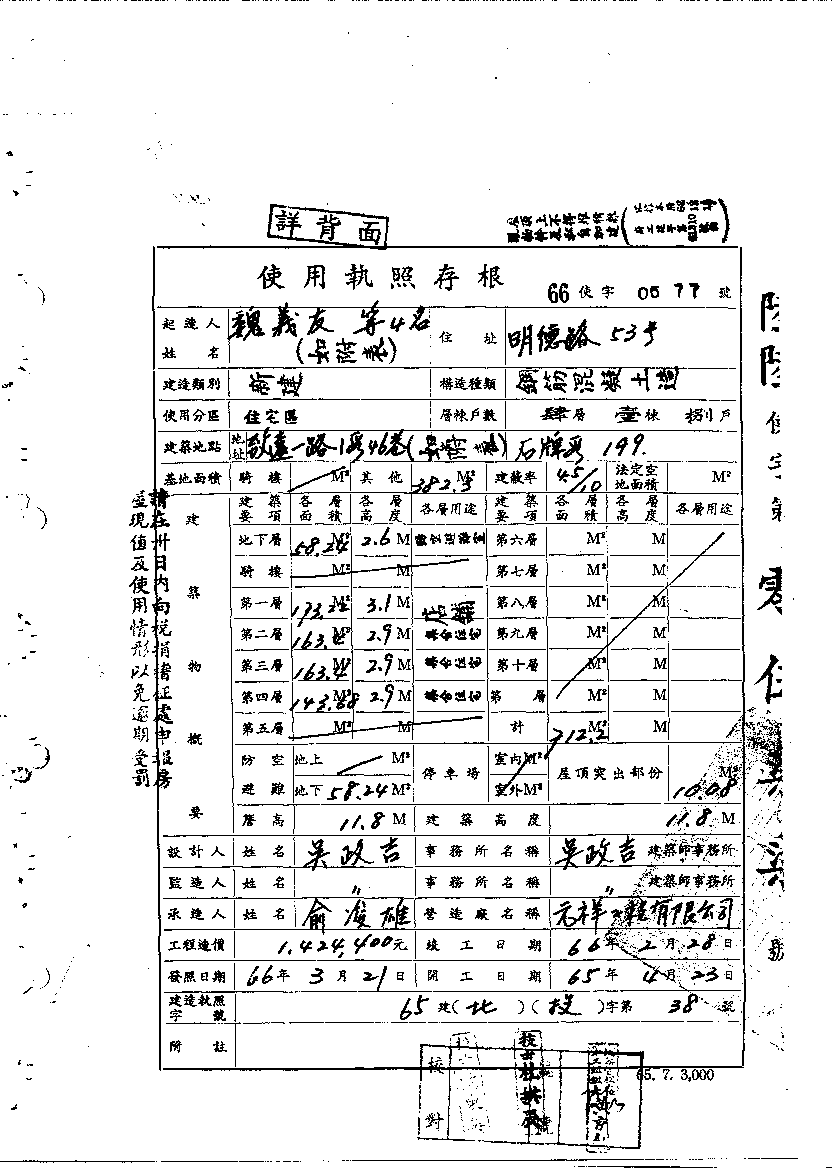 詳背面
使用執照存根
66 使字 0577 號
起造人姓名 魏義友 等4名 (如附表) 住址 明德路 53号
建造類別 新建 構造種類 鋼筋混凝土造
使用分區 住宅區 層棟戶數 肆層 壹棟 捌戶
建築地點 地址 致遠一路1段46巷( ) 石牌段 199.
基地面積 騎樓 M² 其他 382.3 M² 建蔽率 45/10 法定空地面積 M²
建築物概要
建築要項 各層面積 各層高度 各層用途 建築要項 各層面積 各層高度 各層用途
地下層 58.24 M² 2.6 M 第六層 M² M
騎樓 M² M 第七層 M² M
第一層 173.22 M² 3.1 M 店鋪 第八層 M² M
第二層 163.4 M² 2.9 M 集合住宅 第九層 M² M
第三層 163.4 M² 2.9 M 集合住宅 第十層 M² M
第四層 143.68 M² 2.9 M 集合住宅 第 層 M² M
第五層 M² M 計 712.2 M² M
防空避難 地上 M² 地下 58.24 M² 停車場 室內M² 室外M² 屋頂突出部份 10.08 M²
簷高 11.8 M 建築高度 11.8 M
設計人 姓名 吳政吉 事務所名稱 吳政吉 建築師事務所
監造人 姓名 〃 事務所名稱 〃 建築師事務所
承造人 姓名 俞俊雄 營造廠名稱 元祥工程有限公司
工程造價 1,424,400元 竣工日期 66年 2月 28日
發照日期 66年 3月 21日 開工日期 65年 4月 23日
建造執照字號 65 建(北)(投)字第 38 號
附註
65. 7. 3,000
校對
請在卅日內向稅捐稽征處申報房
屋現值及使用情形以免逾期受罰
使字第
號